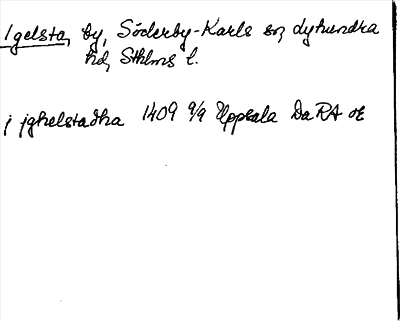 Igelsta, by, Söderby-Karls sn, Lyhundra
hd, Sthlms l.
i jghelstadha 1409 9/9 Uppsala Da RA or